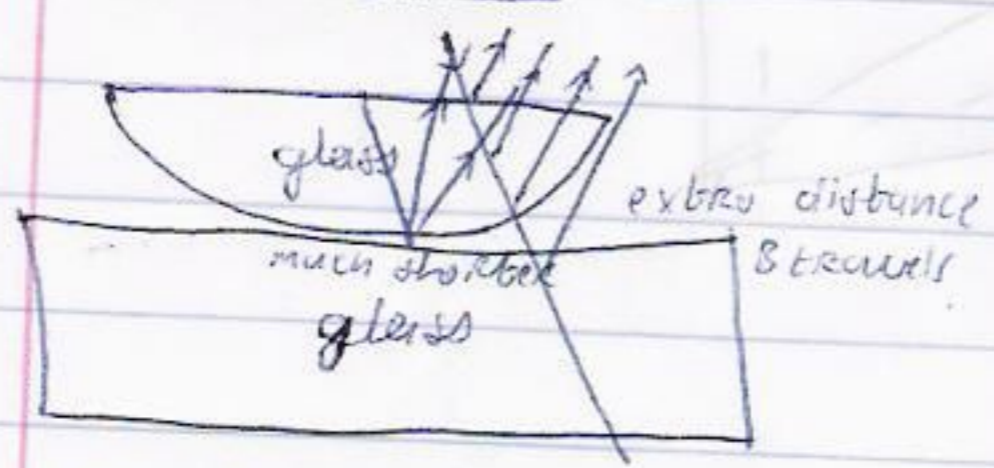 glass
extra distance
B travels
much shorter
glass